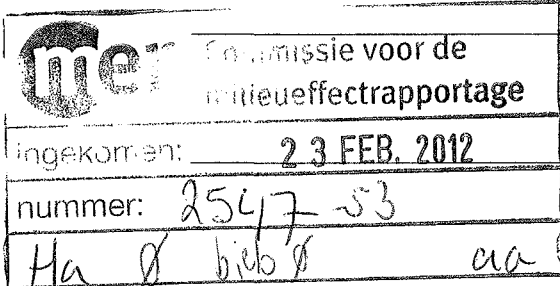 mer Commissie voor de
milieueffectrapportage
ingekomen: 23 FEB. 2012
nummer: 2547-53
Ha Ø bieb Ø aa